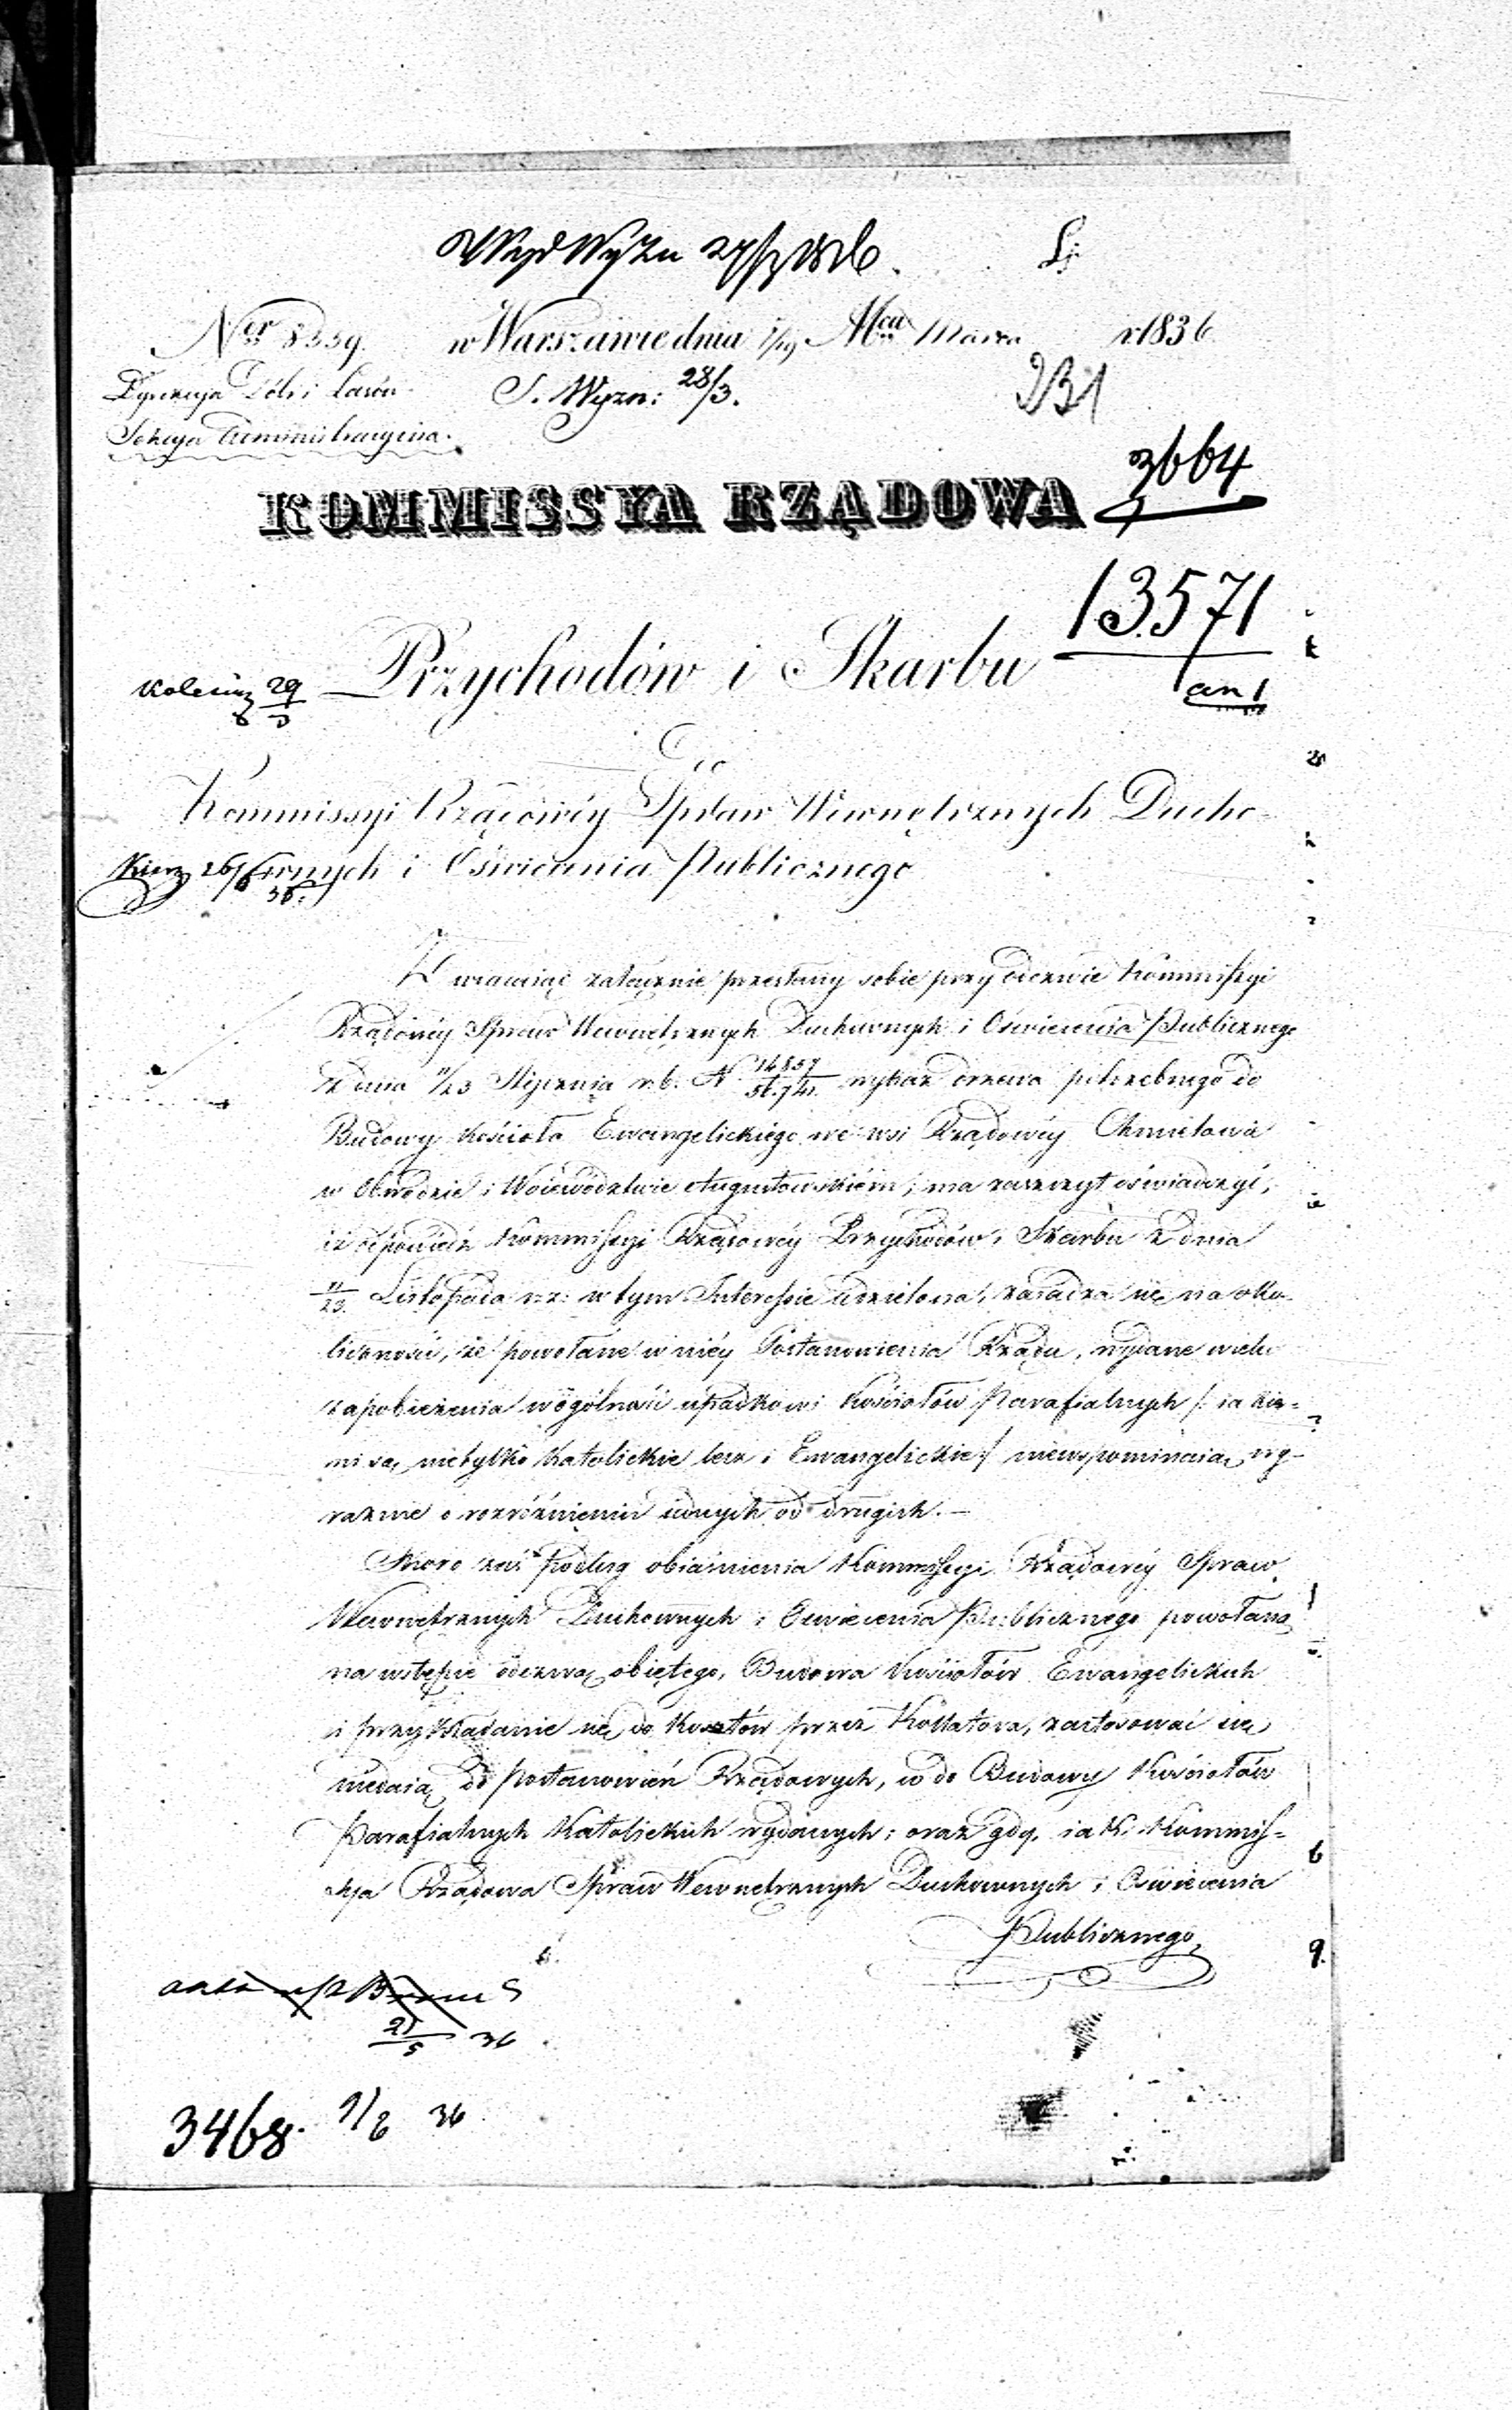 Ner 8359. w Warszawie dnia 7/19 Mca Marca r 1836
Dyrekcya Dóbr i Lasów S. Wyzn: 28/3. 231
Sekcya Administracyjna.
3664
KOMMISSYA RZĄDOWA
13571
Przychodów i Skarbu
29
Do
Kommissyi Rządowéy Spraw Wewnętrznych Ducho-
wnych i Oświecenia Publicznego
Zwracaiąc załącznie przesłany sobie przy odezwie Kommissyi
Rządowéy Spraw Wewnętrznych Duchownych i Oświecenia Publicznego
z dnia 11/23 Stycznia r. b. N wykaz drzewa potrzebnego do
Budowy Kościoła Ewangelickiego we wsi Rządowéy Chmielowie
w Obwodzie i Woiewództwie Augustowskiém, ma zaszczyt oświadczyć,
iż odpowiedź Kommissyi Rządowéy Przychodów i Skarbu z dnia
11/23 Listopada r. z. w tym Interessie udzielona, zasadza się na oko-
liczności, że powołane w niéy Postanowienia Rządu, wydane w celu
zapobieżenia wogólności upadkowi Kościołów Parafialnych /: iakie-
mi są nietylko Katolickie lecz i Ewangelickie :/ niewspominaią wy-
raźnie o rozróżnieniu iednych od drugich. —
Skoro zaś podług obiaśnienia Kommissyi Rządowéy Spraw
Wewnętrznych Duchownych i Oświecenia Publicznego powołaną
na wstępie odezwą obiętego, Budowa Kościołów Ewangelickich
i przykładanie się do Kosztów przez Kollatora, zastosować się
niedaią do Postanowień Rządowych, co do Budowy Kościołów
Parafialnych Katolickich wydanych; oraz gdy, iak Kommis-
sya Rządowa Spraw Wewnętrznych Duchownych i Oświecenia
Publicznego,
36
3468. 36